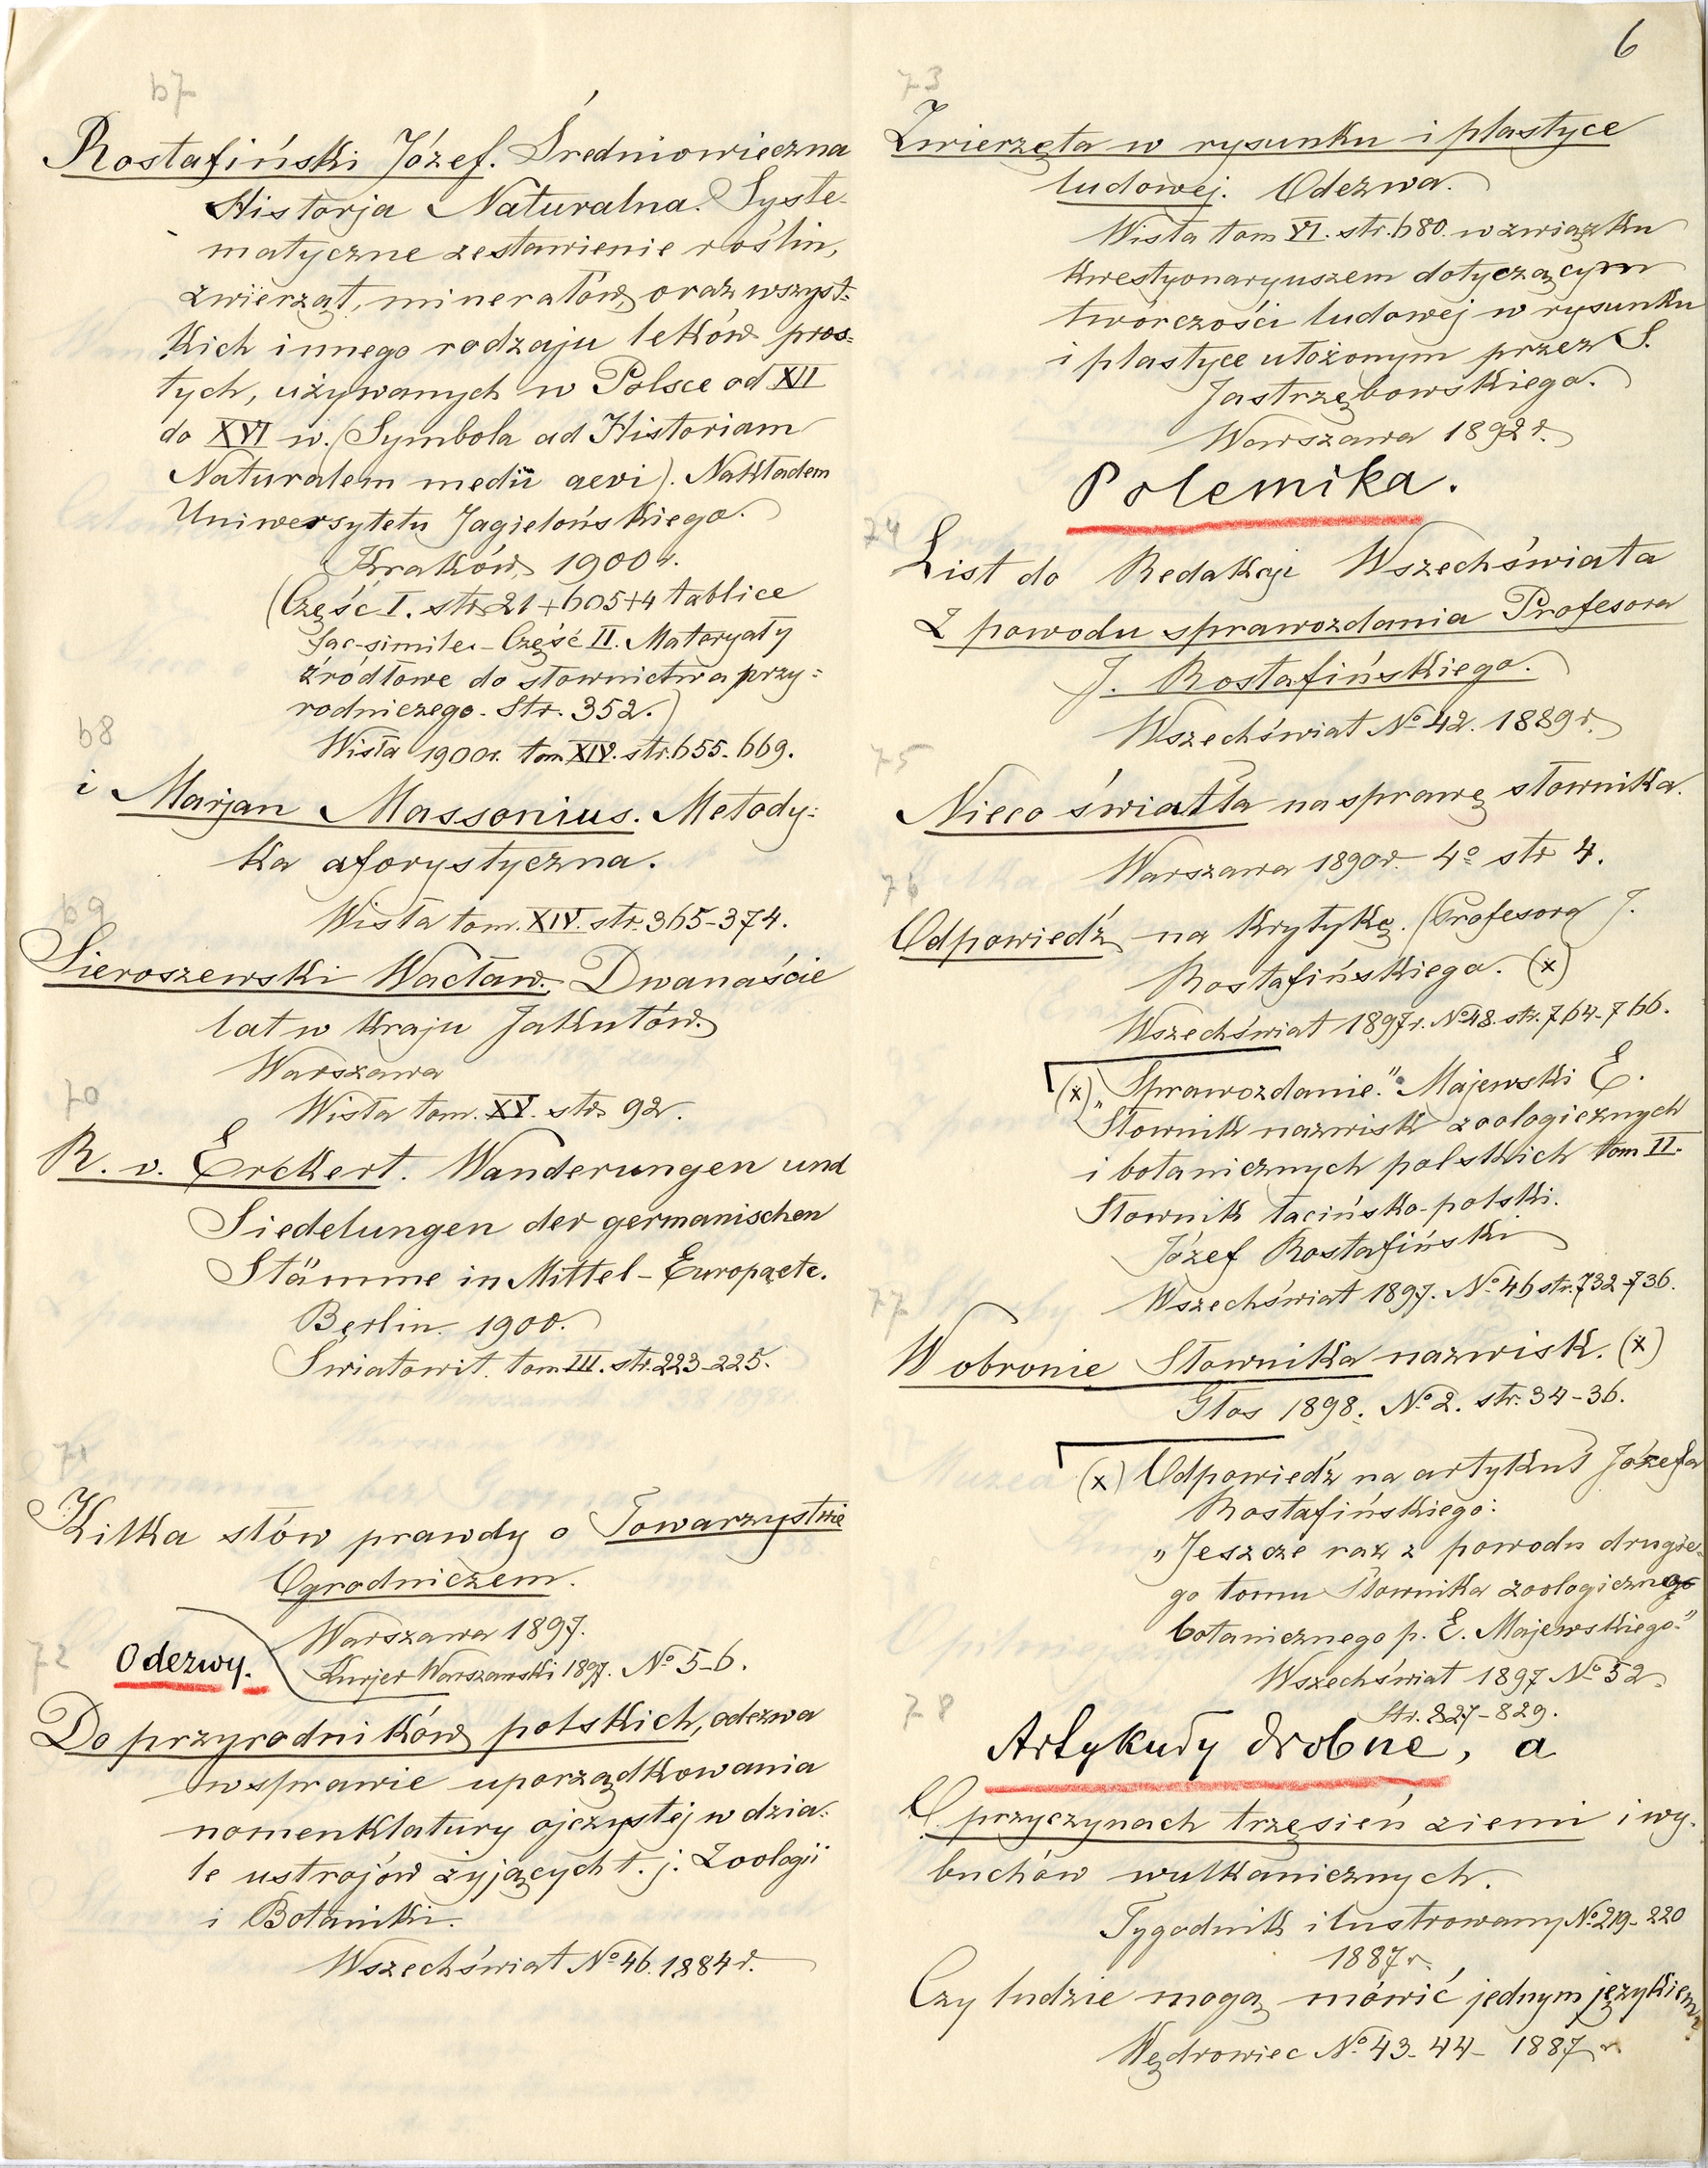 67
Rostafiński Józef. Średniowieczna
Historja Naturalna. Syste-
matyczne zestawienie roślin,
zwierząt, minerałów, oraz wszyst-
kich innego rodzaju leków pros-
tych, używanych w Polsce od XII
do XVI w. (Symbola ad Historiam
Naturalem medii aevi). Nakładem
Uniwersytetu Jagielońskiego.
Kraków, 1900 r.
(Część I. str. 21+605+4 tablice
fac-simile. - Część II. Materyały
źródłowe do słownictwa przy-
rodniczego. Str. 352.)
Wisła 1900 r. tom XIV. str. 655-669.
68
i Marjan Massonius. Metody-
ka aforystyczna.
Wisła tom. XIV. str. 365-374.
69
Sieroszewski Wacław. Dwanaście
lat w kraju Jakutów.
Warszawa
Wisła tom. XV. str. 92.
70
R. v. Erckert. Wanderungen und
Siedelungen der germanischen
Stämme in Mittel-Europa etc.
Berlin. 1900.
Światowit. tom III. str. 223-225.
71
Kilka słów prawdy o Towarzystwie
Ogrodniczem.
Warszawa 1897.
Kurjer Warszawski 1897. No 5-6.
72
Odezwy.
Do przyrodników polskich, odezwa
w sprawie uporządkowania
nomenklatury ojczystej w dzia-
le ustrojów żyjących t. j. Zoologii
i Botaniki.
Wszechświat No 46. 1884 r.
6
73
Zwierzęta w rysunku i plastyce
ludowej. Odezwa.
Wisła tom VI. str. 680. w związku
kwestyonaryuszem dotyczącym
twórczości ludowej w rysunku
i plastyce ułożonym przez S.
Jastrzębowskiego.
Warszawa 1892 r.
Polemika.
74
List do Redakcji Wszechświata
Z powodu sprawozdania Profesora
J. Rostafińskiego.
Wszechświat No 42. 1889 r.
75
Nieco światła na sprawę słownika.
Warszawa 1890 r. - 4o str 4.
76
Odpowiedź na krytykę. (Profesora J.
Rostafińskiego. (x)
Wszechświat 1897 r. No 48. str. 764-766.
(x) „Sprawozdanie." Majewski E.
Słownik nazwisk zoologicznych
i botanicznych polskich tom II.
Słownik łacińsko-polski.
Józef Rostafiński
Wszechświat 1897. No 46 str. 732-736.
77
W obronie Słownika nazwisk. (x)
Głos 1898. No 2. str. 34-36.
(x) Odpowiedź na artykuł Józefa
Rostafińskiego:
„Jeszcze raz z powodu drugie-
go tomu Słownika zoologiczno
botanicznego p. E. Majewskiego."
Wszechświat 1897 No 52
str. 827-829.
78
Artykuły drobne, a
O przyczynach trzęsień ziemi i wy-
buchów wulkanicznych.
Tygodnik ilustrowany No 219-220
1887 r.
Czy ludzie mogą mówić jednym językiem?
Wędrowiec No 43-44- 1887 r.